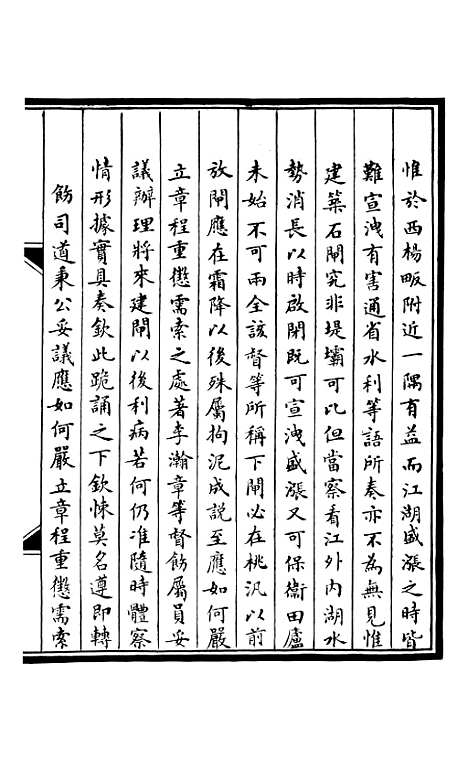 惟於西楊畈附近一隅有益而江湖盛漲之時皆
難宣洩有害通省水利等語所奏亦不為無見惟
建築石閘究非堤壩可比但當察看江外內湖水
勢消長以時啟閉既可宣洩盛漲又可保衛田廬
未始不可兩全該督等所稱下閘必在桃汛以前
放閘應在霜降以後殊屬拘泥成說至應如何嚴
立章程重懲需索之處著李瀚章等督飭屬員妥
議辦理將來建閘以後利病若何仍准隨時體察
情形據實具奏欽此跪誦之下欽悚莫名遵即轉
飭司道秉公妥議應如何嚴立章程重懲需索